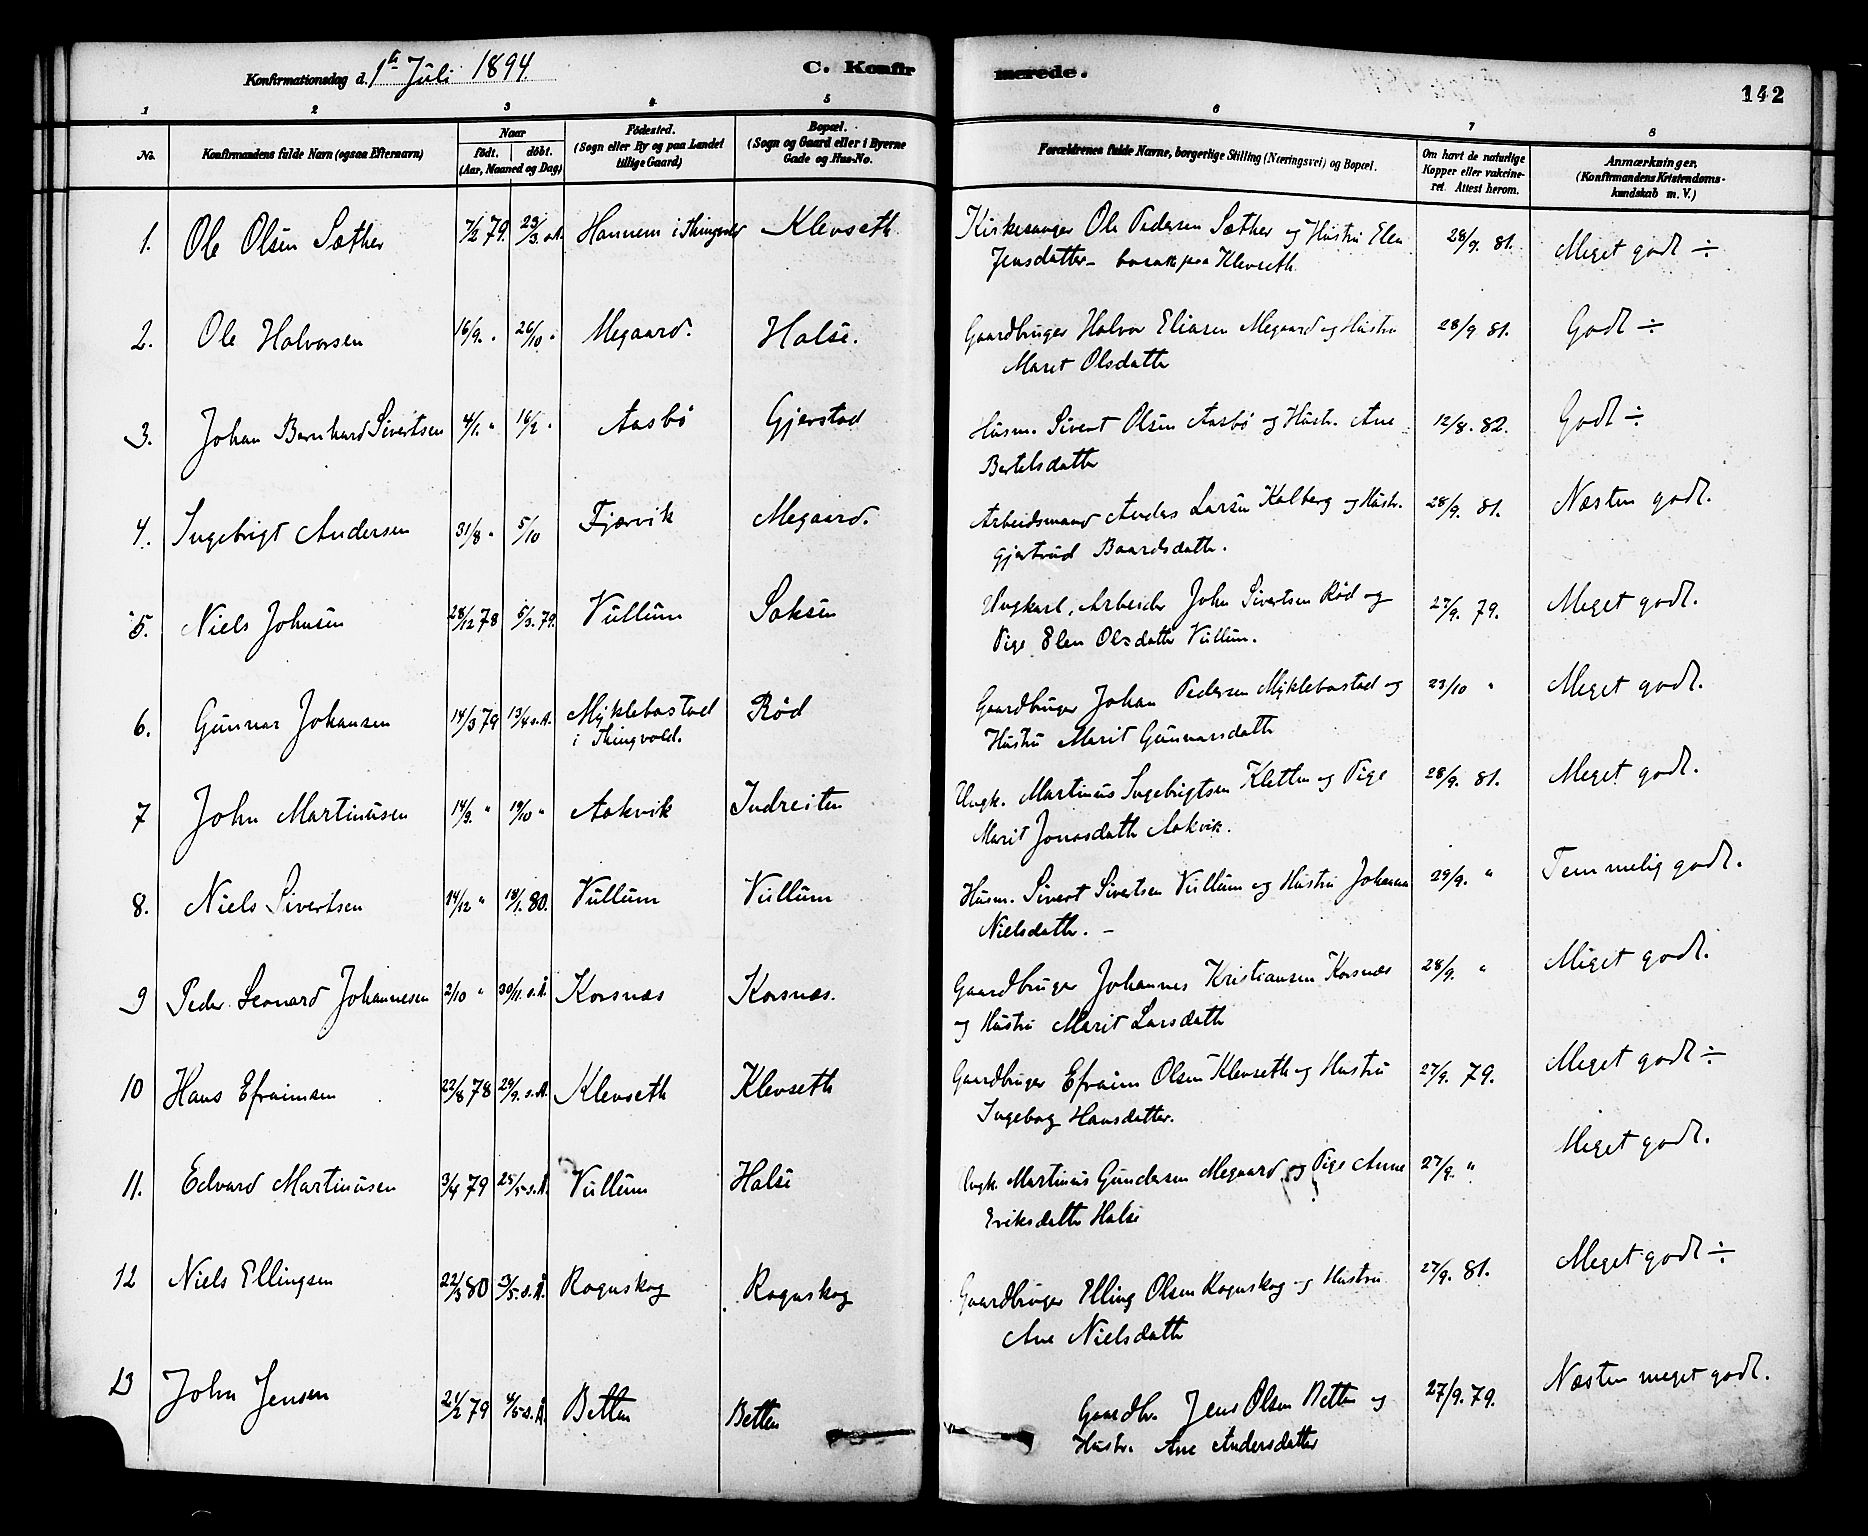 Konfirmationsdag d. 1ste Juli 1894.
C. Konfirmerede.
142
1 2 3 4 5 6 7 8
No.
Konfirmandens fulde Navn (ogsaa Efternavn)
Naar
födt. döbt.
(Aar, Maaned og Dag)
Födested.
(Sogn eller By og paa Landet
tillige Gaard)
Bopæl.
(Sogn og Gaard eller i Byerne
Gade og Hus-No.
Forældrenes fulde Navne, borgerlige Stilling (Næringsvei) og Bopæl.
Om havt de naturlige
Kopper eller vakcine-
ret. Attest herom.
Anmærkninger.
(Konfirmandens Kristendoms-
kundskab m. V.)
1. Ole Olsen Sæther 7/2 79. 23/3. s.A. Hannem i Klevseth Kirkesanger Ole Pedersen Sæther og Hustru Elen 28/9. 81. Meget godt ÷
Jensdatter – bosatt paa Klevseth
2. Ole Halvorsen 16/9. " 26/10 " Megaard. Halse. Gaardbruger Halvor Eliasen Megaard og Hustru 28/9 81. Godt ÷
Maret Olsdattr
3. Johan Bernhard Sivertsen 4/1. " 16/2 " Aasbö Gjerstad Husm. Sivert Olsen Aasbö og Hustr. Ane 12/8. 82. Godt ÷
Bertelsdattr
4. Ingebrigt Andersen 31/8 " 5/10 Fjærvik Megaard. Arbeidsmand Anders Larsen Kalberg og Hustr. 28/9. 81. Næsten godt.
Gjertrud Baardsdattr.
5. Niels Johnsen 28/12 78 5/3. 79. Vullum Saksen Ungkarl, Arbeider John Sivertsen Röd og 27/9. 79. Meget godt.
Pige Elen Olsdattr Vullum.
6. Gunnar Johansen 14/3 79 13/4 s.A. Myklebostad Röd Gaardbruger Johan Pedersen Myklebostad og 23/10 " Meget godt.
i Thingvold. Hustru Marit Gunnarsdattr
7 John Martinusen 14/9. " 19/10 " Aakvik Indreiten Ungk. Martinus Ingebrigtsen Kletten og Pige 28/9. 81. Meget godt.
Marit Jonasdattr Aakvik.
8. Niels Sivertsen 14/12 " 18/1. 80. Vullum Vullum Husm. Sivert Sivertsen Vullum og Hustru Johanna 29/9. " Temmelig godt.
Nielsdattr. –
9 Peder Leonard Johannesen 2/10 " 30/11. s.A. Korsnæs Korsnæs. Gaardbruger Johannes Kristiansen Korsnæs 28/9. " Meget godt.
og Hustru Marit Larsdattr
10 Hans Efraimsen 22/8 78 29/9. s.A. Klevseth Klevseth Gaardbruger Efraim Olsen Klevseth og Hustru 27/9. 79. Meget godt ÷
Ingebog Hansdatter.
11. Edvard Martinusen 3/4 79 25/5 s.A. Vullum Halse Ungk. Martinus Gundersen Megaard og Pige Anne 27/9. " Meget godt.
Eriksdattr Halse
12 Niels Ellingsen 22/3 80 3/5. s.A. Rognskog Rognskog Gaardbruger Elling Olsen Rognskog og Hustru 27/9. 81. Meget godt ÷
Ane Nielsdattr
13 John Jensen 21/2 79 4/5 s.A. Betten Betten Gaardbr. Jens Olsen Betten og 27/9. 79. Næsten meget godt.
Hustr. Ane Andersdatter